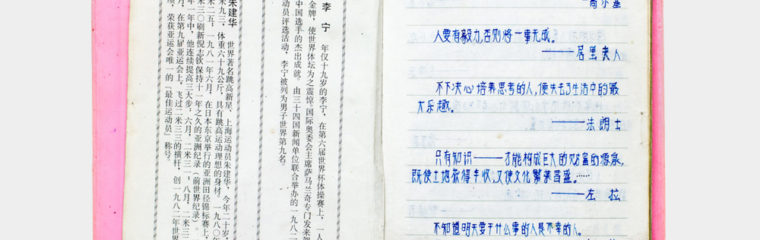 李 宁
年仅十九岁的李宁,在第六届世界杯体操赛上,一人
金牌,使世界体坛为之震惊。国际奥委会主席萨马兰奇专门发来贺
中国选手的杰出成就。由三十四国新闻单位联合举办的一九八二
动员评选活动,李宁被列为男子世界第九名。
朱建华
世界著名跳高新星,上海运动员朱建华,今年二十岁,
米九三,体重六十九公斤,具有跳高运动理想的身材。一九八〇年
米二五,一九八一年六月,在日本东京举行的亚洲田径锦标赛上,
米三〇刷新倪志钦保持十一年之久的亚洲纪录(前世界纪录)。
年一年中,他连续提高三大步,六月,二米三一,八月,二米三二
月,在第九届亚运会上,飞过二米三三的横杆,创一九八二年世界
荣获亚运会唯一的「最佳运动员」称号。
人要有毅力,否则将一事无成。
——居里夫人
不下决心培养思考的人,便失去了生活中的最
大乐趣。
——法姆士
只有知识——才能构成巨大的财富的源泉,
既使土地获得丰收,又使文化繁荣昌盛。……
——左 拉
不知道明天要干什么事的人是不幸的人。